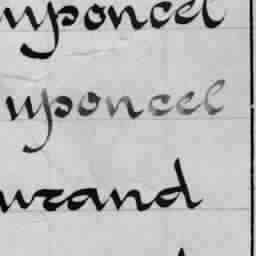 uponcel
uponcel
urand